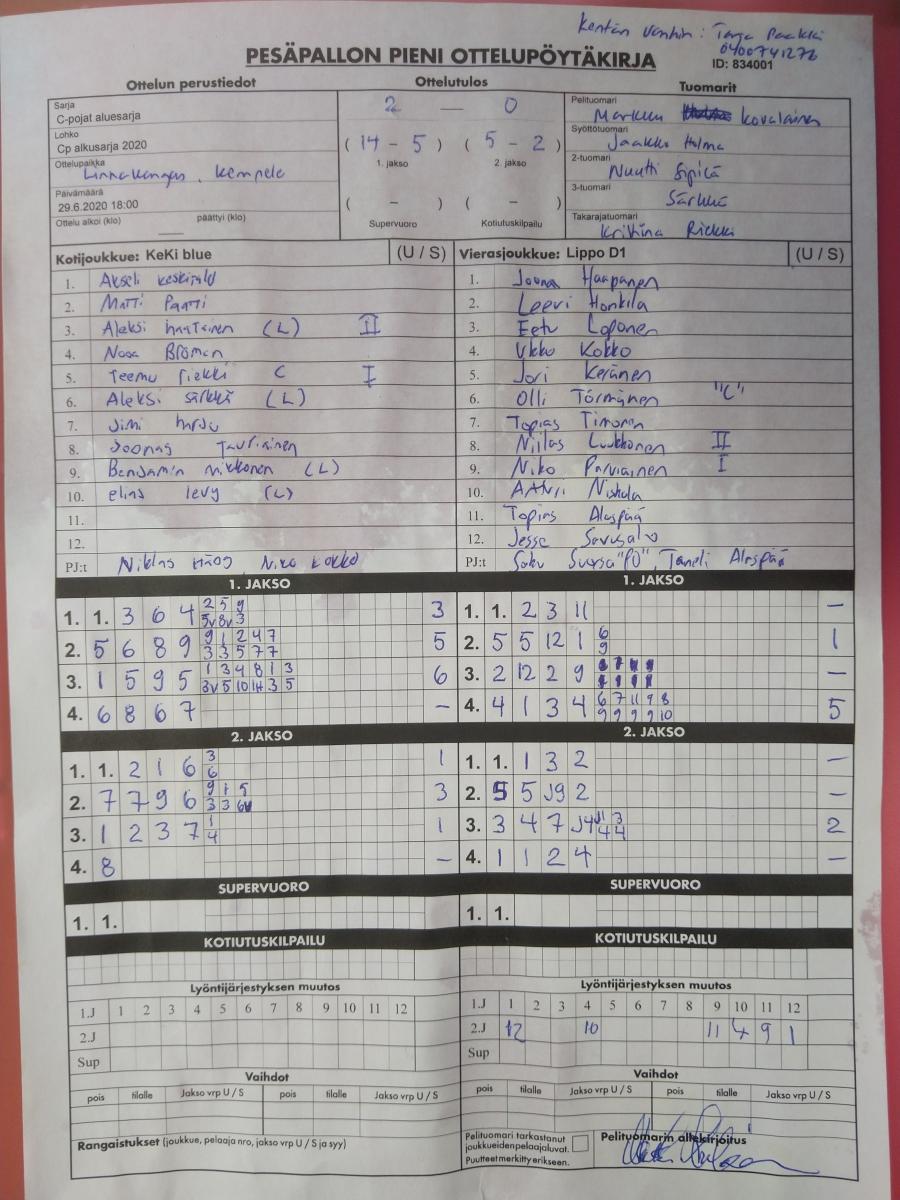 Kentän vanhin: Tarja Paakki
0400741272
PESÄPALLON PIENI OTTELUPÖYTÄKIRJA
ID: 834001
Ottelun perustiedot
Sarja
C-pojat aluesarja
Lohko
Cp alkusarja 2020
Ottelupaikka
Linnakangas, Kempele
Päivämäärä
29.6.2020 18:00
Ottelu alkoi (klo) päättyi (klo)
Ottelutulos
2 — 0
( 14 - 5 ) ( 5 - 2 )
1. jakso 2. jakso
( - ) ( - )
Supervuoro Kotiutuskilpailu
Tuomarit
Pelituomari
Markku Kovalainen
Syöttötuomari
Jaakko Holma
2-tuomari
Nuutti Sipilä
3-tuomari
Särkkä
Takarajatuomari
Kristiina Riekki
Kotijoukkue: KeKi blue (U / S)
1. Akseli
2. Matti Paatti
3. Aleksi (L) II
4. Nooa Broman
5. Teemu Riekki C I
6. Aleksi Särkkä (L)
7. Jimi
8. Joonas Tauriainen
9. Benjamin Mikkonen (L)
10. elias levy (L)
11.
12.
PJ:t Niklas Niko Kokko
Vierasjoukkue: Lippo D1 (U / S)
1. Joona Haapanen
2. Leevi Honkila
3. Eetu Loponen
4. Ukko Kokko
5. Jori Keränen
6. Olli Törmänen "C"
7. Topias Timonen
8. Niilas Luukkonen II
9. Niko Parviainen I
10. Antti Niskala
11. Topias Alaspää
12. Jesse Savusalo
PJ:t Saku "PJ", Taneli Alaspää
1. JAKSO
1. 1. 3 6 4 2 5 9 3
5v 8v 3
2. 5 6 8 9 9 1 2 4 7 5
3 3 5 7 7
3. 1 5 9 5 1 3 4 8 1 3 6
3v 5 10 14 3 5
4. 6 8 6 7 –
1. JAKSO
1. 1. 2 3 11 –
2. 5 5 12 1 6 1
9
3. 2 12 2 9 –
4. 4 1 3 4 6 7 11 9 8 5
9 9 9 9 10
2. JAKSO
1. 1. 2 1 6 3 1
6
2. 7 7 9 6 9 1 5 3
3 3 6v
3. 1 2 3 7 1 1
4
4. 8 –
2. JAKSO
1. 1. 1 3 2 –
2. 5 5 J9 2 –
3. 3 4 7 J4 J1 3 2
4 4
4. 1 1 2 4 –
SUPERVUORO
1. 1.
SUPERVUORO
1. 1.
KOTIUTUSKILPAILU
KOTIUTUSKILPAILU
Lyöntijärjestyksen muutos
1.J 1 2 3 4 5 6 7 8 9 10 11 12
2.J
Sup
Lyöntijärjestyksen muutos
1.J 1 2 3 4 5 6 7 8 9 10 11 12
2.J 12 10 11 4 9 1
Sup
Vaihdot
pois tilalle Jakso vrp U / S pois tilalle Jakso vrp U / S
Vaihdot
pois tilalle Jakso vrp U / S pois tilalle Jakso vrp U / S
Rangaistukset (joukkue, pelaaja nro, jakso vrp U / S ja syy)
Pelituomari tarkastanut
joukkueidenpelaajaluvat.
Puutteetmerkittyerikseen.
Pelituomarin allekirjoitus